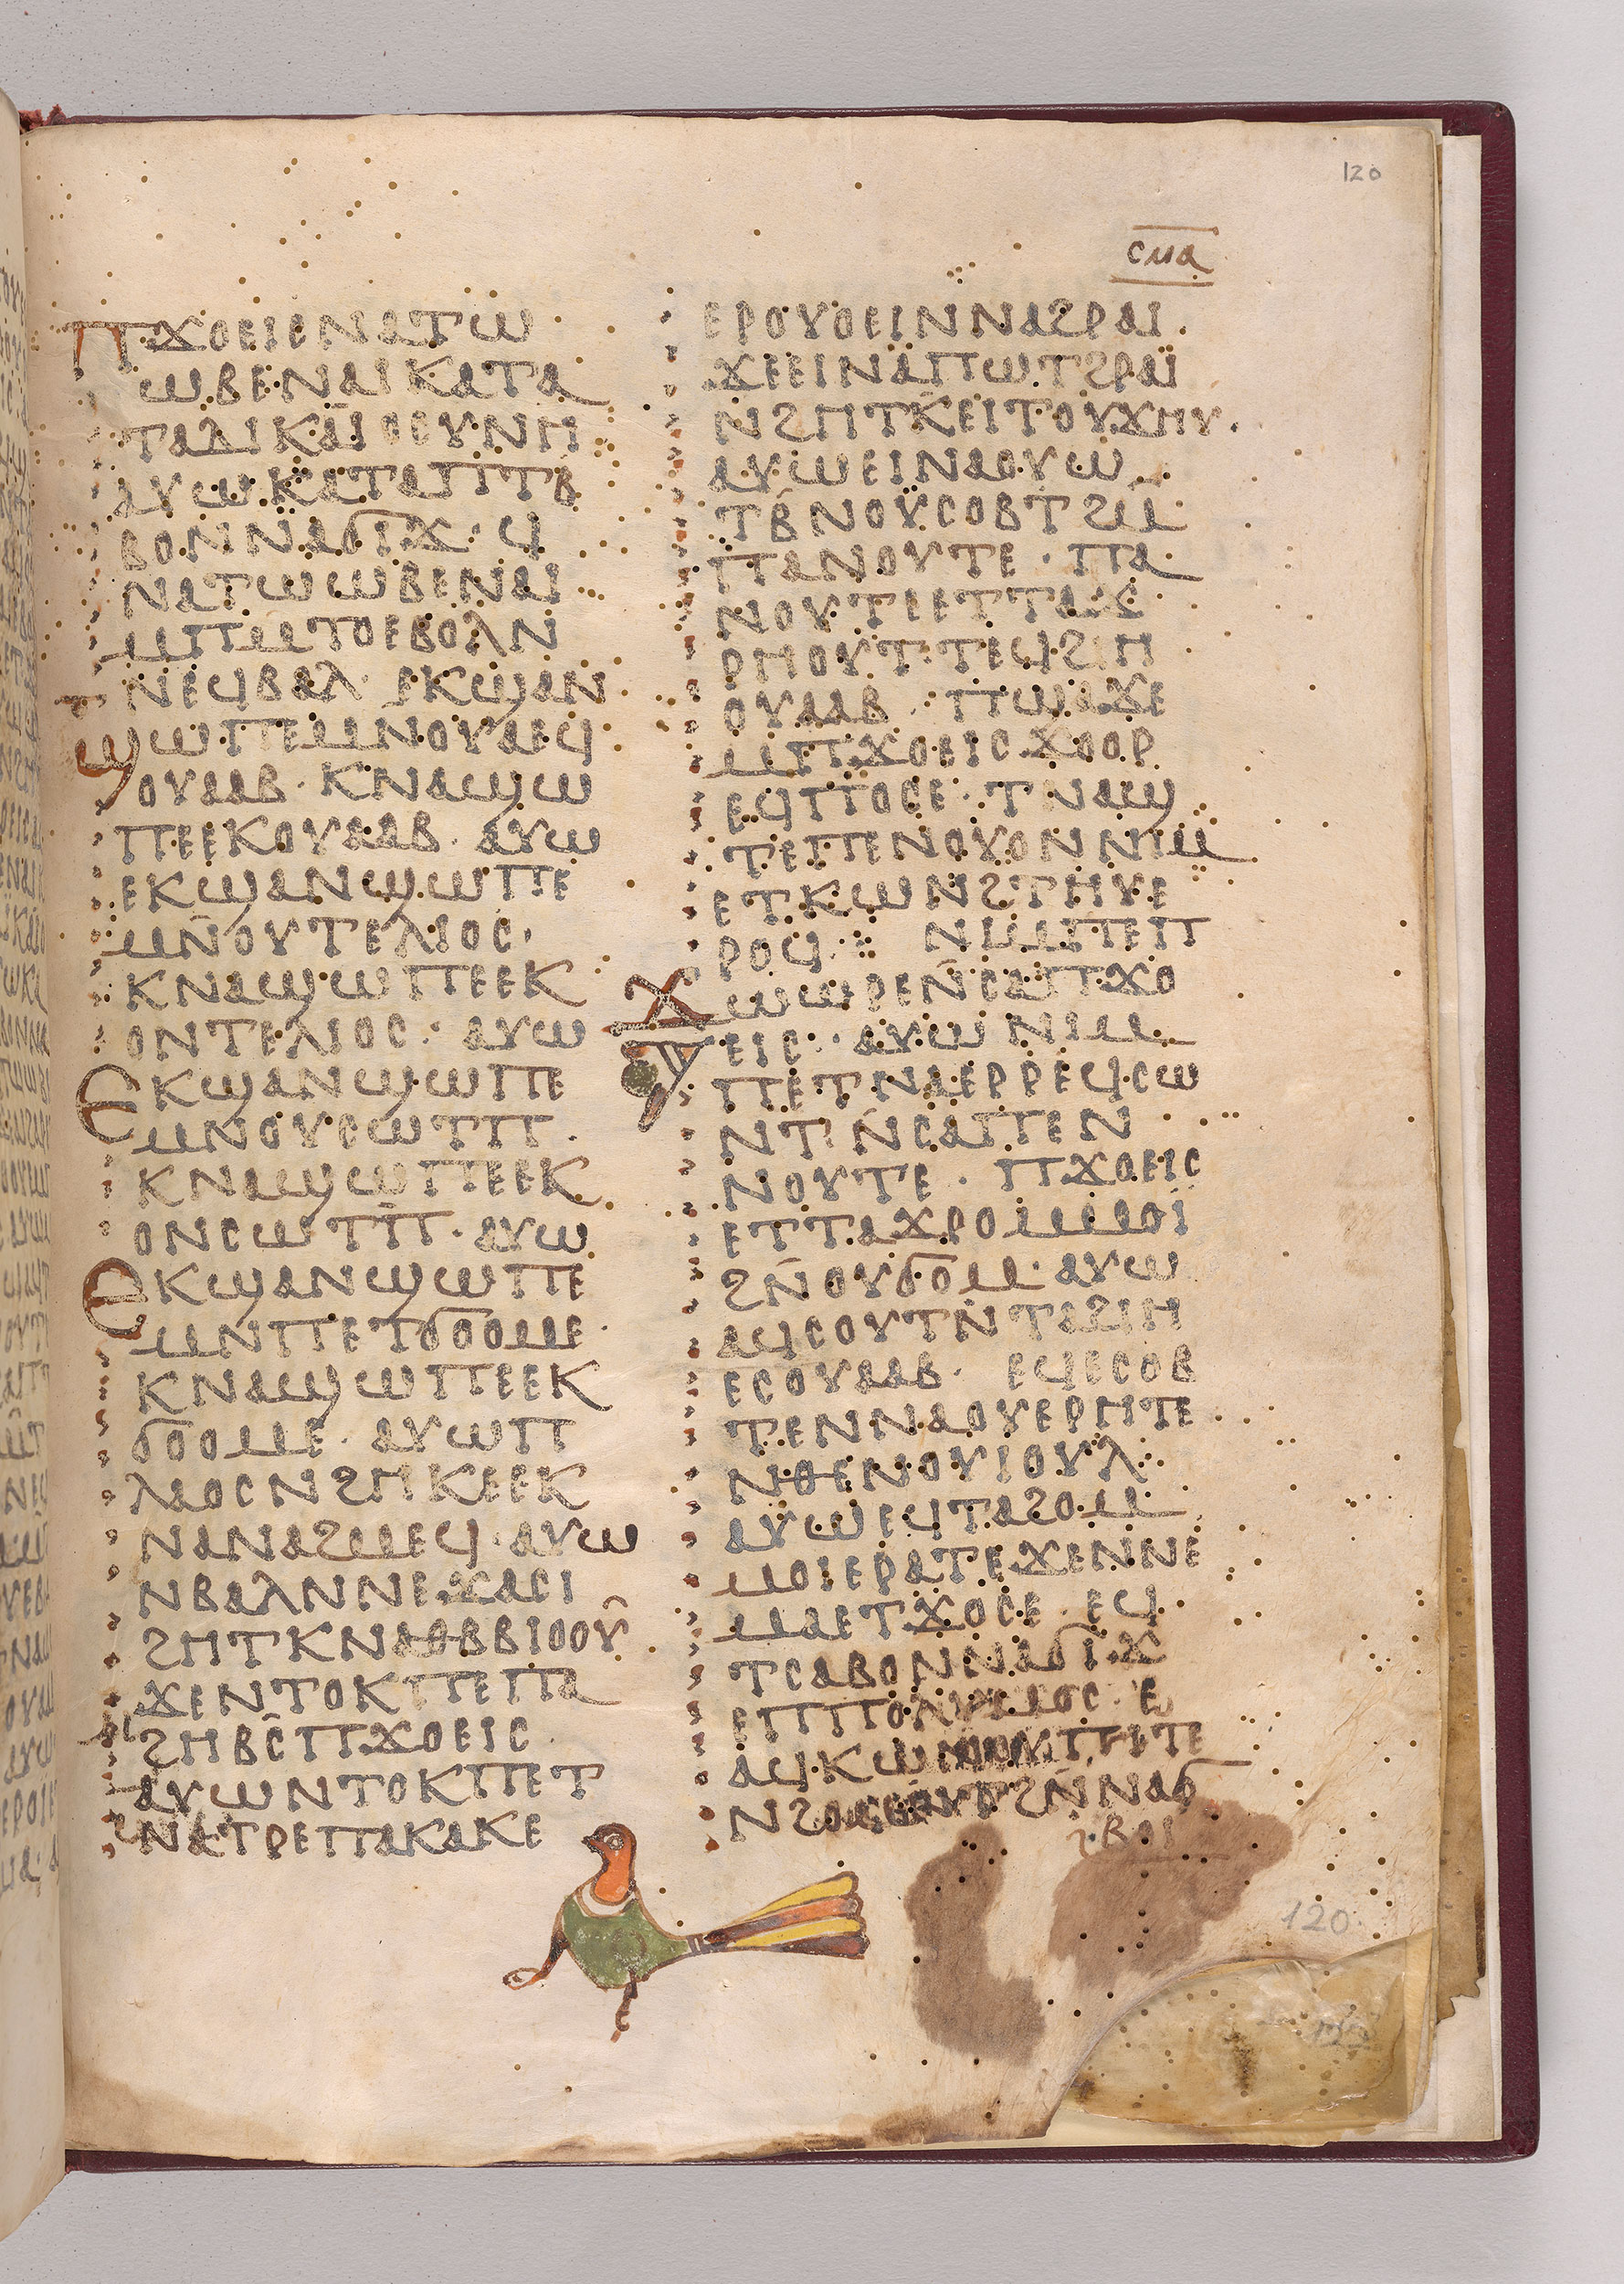 120
ⲥⲙⲁ
ⲡϫⲟⲉⲓⲥⲛⲁⲧⲱ
ⲱⲃⲉⲛⲁⲓⲕⲁⲧⲁ
ⲧⲁⲇⲓⲕⲁⲓⲟⲥⲩⲛⲏ
ⲁⲩⲱⲕⲁⲧⲁⲡⲧⲃ
ⲃⲟⲛⲛⲁϭⲓϫ · ϥ
ⲛⲁⲧⲱⲱⲃⲉⲛⲁⲓ
ⲙⲡⲙⲧⲟⲉⲃⲟⲗⲛ
ⲛⲉϥⲃⲁⲗ · ⲉⲕϣⲁⲛ
ϣⲱⲡⲉⲙⲛⲟⲩⲁⲉϥ
ⲟⲩⲁⲁⲃ · ⲕⲛⲁϣⲱ
ⲡⲉⲉⲕⲟⲩⲁⲁⲃ · ⲁⲩⲱ
ⲉⲕϣⲁⲛϣⲱⲡⲉ
ⲙⲛ̄ⲟⲩⲧⲉⲗⲓⲟⲥ ·
ⲕⲛⲁϣⲱⲡⲉⲉⲕ
ⲟⲛⲧⲉⲗⲓⲟⲥ · ⲁⲩⲱ
ⲉⲕϣⲁⲛϣⲱⲡⲉ
ⲙⲛⲟⲩⲥⲱⲧⲡ ·
ⲕⲛⲁϣⲱⲡⲉⲉⲕ
ⲟⲛⲥⲱⲧⲡ̄ · ⲁⲩⲱ
ⲉⲕϣⲁⲛϣⲱⲡⲉ
ⲙⲛⲡⲉⲧϭⲟⲟⲙⲉ ·
ⲕⲛⲁϣⲱⲡⲉⲉⲕ
ϭⲟⲟⲙⲉ · ⲁⲩⲱⲡ
ⲗⲁⲟⲥⲛϩⲏⲕⲉⲉⲕ
ⲛⲁⲛⲁϩⲙⲉϥ · ⲁⲩⲱ
ⲛⲃⲁⲗⲛⲛⲉϫⲁⲥⲓ
ϩⲏⲧⲕⲛⲁⲑⲃⲃⲓⲟⲟⲩ̂
ϫⲉⲛⲧⲟⲕⲡⲉⲡⲁ
ϩⲏⲃⲥ̄ⲡϫⲟⲉⲓⲥ
ⲁⲩⲱⲛⲧⲟⲕⲡⲉⲧ
ⲛⲁⲧⲣⲉⲡⲁⲕⲁⲕⲉ
ⲉⲣⲟⲩⲟⲉⲓⲛⲛⲁϩⲣⲁⲓ ·
ϫⲉⲉⲓⲛⲁⲡⲱⲧϩⲣⲁⲓ̈
ⲛϩⲏⲧⲕ̄ⲉⲓⲧⲟⲩϫⲏⲩ ·
ⲁⲩⲱⲉⲓⲛⲁⲟⲩⲱ
ⲧⲃ̄ⲛⲟⲩⲥⲟⲃⲧϩⲙ̄
ⲡⲁⲛⲟⲩⲧⲉ · ⲡⲁ
ⲛⲟⲩⲧⲉⲉⲧⲧⲁⲥ
ⲣⲏⲟⲩⲧ · ⲧⲉϥϩⲓⲏ
ⲟⲩⲁⲁⲃ · ⲡϣⲁϫⲉ
ⲙⲡϫⲟⲉⲓⲥϫⲟⲟⲣ
ⲉϥⲡⲟⲥⲉ · ϥⲛⲁϣ
ⲧⲉⲡⲉⲛⲟⲩⲟⲛⲛⲓⲙ
ⲉⲧⲕⲱⲛϩⲧⲏⲩⲉ
ⲣⲟϥ : ⲛⲓⲙⲡⲉⲡ
ϫⲱⲱⲣⲉⲛ̄ⲥⲁⲡϫⲟ
ⲉⲓⲥ · ⲁⲩⲱⲛⲓⲙ
ⲡⲉⲧⲛⲁⲉⲣⲣⲉϥⲥⲱ
ⲛⲧ ⲛ̄ⲥⲁⲡⲉⲛ
ⲛⲟⲩⲧⲉ · ⲡϫⲟⲉⲓⲥ
ⲉⲧⲧⲁϫⲣⲟⲙⲙⲟⲓ̈
ϩⲛ̄ⲟⲩϭⲟⲙ · ⲁⲩⲱ
ⲁϥⲥⲟⲩⲧⲛ̄ⲧⲁϩⲓⲏ
ⲉⲥⲟⲩⲁⲁⲃ · ⲉϥⲉⲥⲟⲃ
ⲧⲉⲛⲛⲁⲟⲩⲉⲣⲏⲧⲉ ·
ⲛⲑⲉⲛⲟⲩⲓⲟⲩⲗ
ⲁⲩⲱⲉϥⲧⲁϩⲟⲙ
ⲙⲟⲓⲉⲣⲁⲧⲉϫⲉⲛⲛⲉ
ⲙⲁⲉⲧϫⲟⲥⲉ · ⲉϥ
ⲧⲥⲁⲃⲟⲛⲛⲁϭⲓϫ
ⲉⲡⲡⲟⲗⲩⲙⲟⲥ · ⲉ
ⲁϥⲕⲱ ⲡⲓⲧⲉ
ⲛϩⲟ ϩⲛ̄ⲛⲁϭ
ⲃⲟⲓ
120